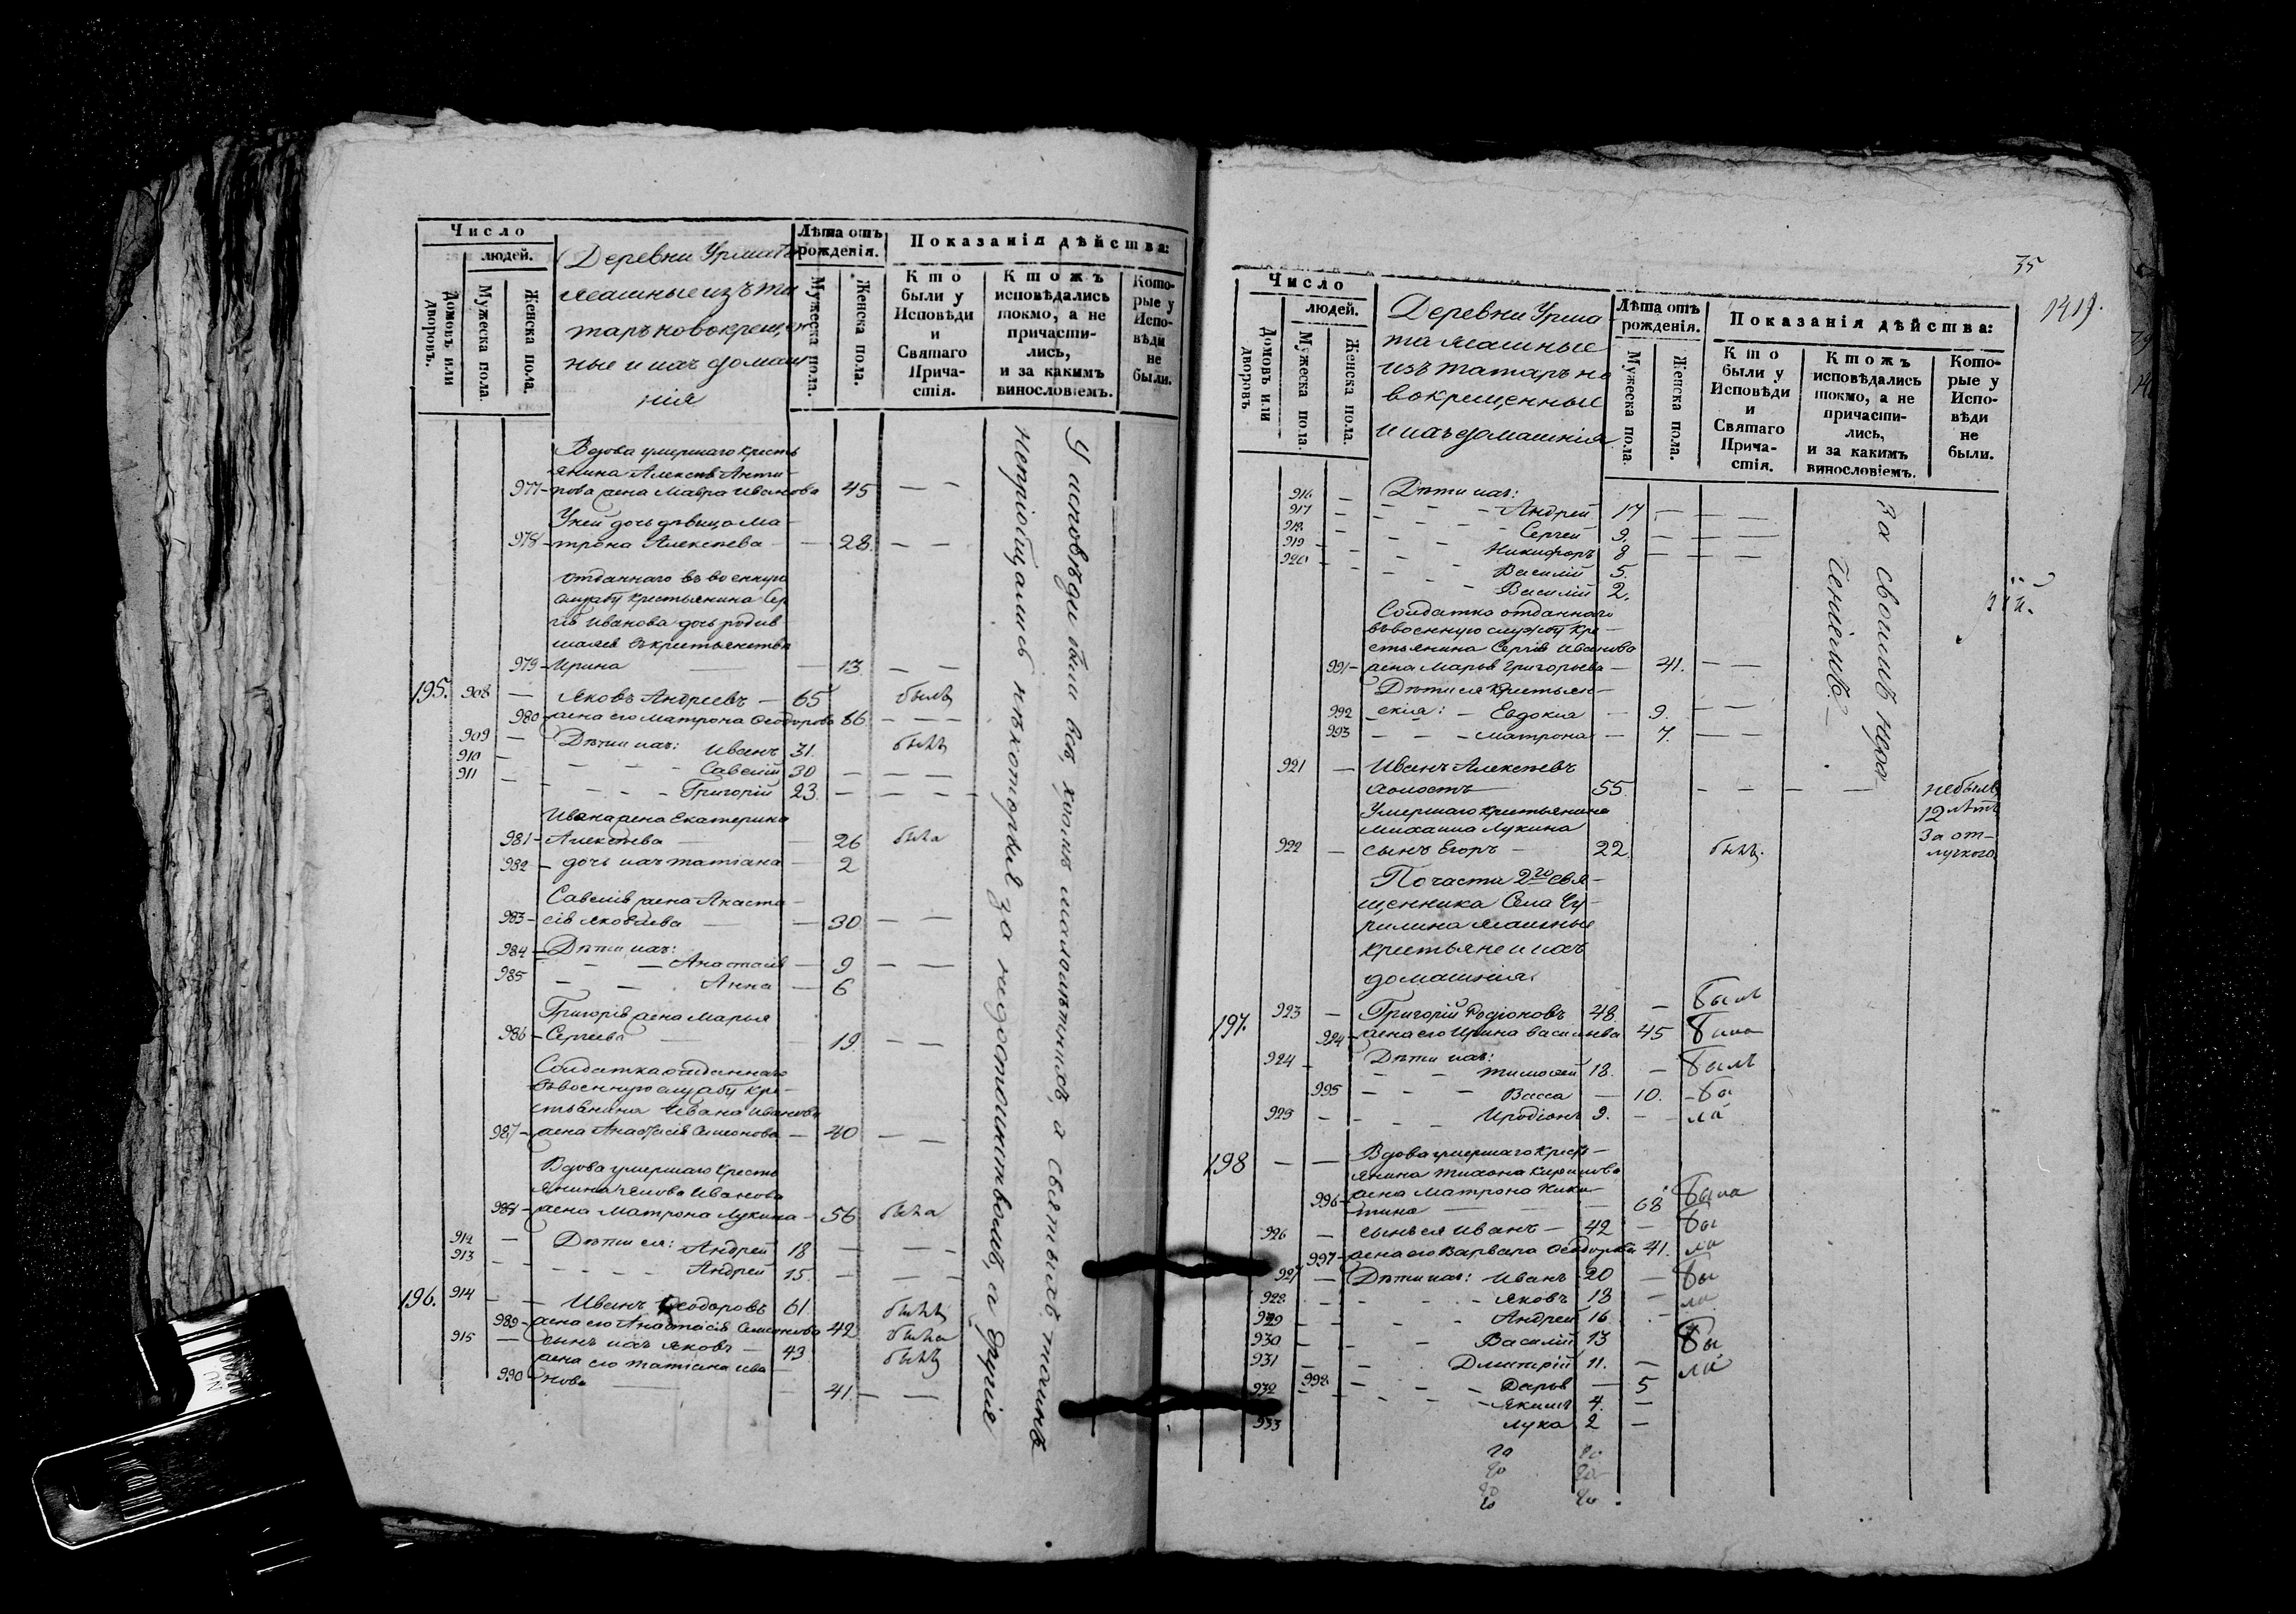 Число
людей.
Домовъ или дворовъ.
Мужеска пола.
Женска пола.
Деревни Урмата
ясашные изъ та
таръ новокрещен
ные и ихъ домаш
нія
Лѣта отъ
рожденія.
Мужеска пола.
Женска пола.
Показанія дѣйства:
Кто
были у
Исповѣди
и
Святаго
Прича-
стія.
Ктожъ
исповѣдались
токмо, а не
причасти-
лись,
и за какимъ
винословіемъ.
Кото-
рые у
Испо-
вѣди
не
были.
Вдова умершаго кресть
янина Алексѣя Анти-
977 - пова жена Мавра Иванова 45 — —
У ней дочь дѣвица Ма-
978 - трона Алексѣева — 28. — —
отданнаго въ военную
службу крестьянина Сер
гѣя Иванова дочь родив
шаяся въ крестьянствѣ
979 - Ирина — 13. — —
195. 908 — Яковъ Андреевъ — 65 былъ
980 - жена его Матрона Ѳеодорова 66 — — —
909 — Дѣти ихъ: Иванъ 31. былъ
910 — — — — Савелій 30 — — —
911 — — — — Григорій 23. — — —
Ивана жена Екатерина
981 - Алексѣева — 26 была
982 - дочь ихъ Татіана — 2
Савелія жена Анаста-
983 - сія Яковлева — 30 — —
984 - Дѣти ихъ:
— — Анастасія — 9 — —
985 — — Анна — 6
Григорія жена Марья
986 - Сергеева — 19. — —
Солдатка отданнаго
въ военную службу кре-
стьянина Ивана Иванова
987 - жена Анастасія Семенова — 40 — —
Вдова умершаго кресть
янина Иванова
988 - жена Матрона Лукина - 56 была
912 — Дѣти ея: Андрей 18 — — —
913 — — — — Андрей 15. — — —
196. 914 — — Иванъ Ѳеодоровъ 61. былъ
989 - жена его Анастасія Семенова 42 была
915 — сынъ ихъ Яковъ — 43. былъ
жена его Татіана Ива
990 - нова — 41. — —
У исповѣди были всѣ, кромѣ малолѣтнихъ, а святыхъ таинъ
непріобщались нѣкоторыя за недостоинствомъ, а другіе
35
1419.
Число
людей.
Домовъ или дворовъ
Мужеска пола
Женска пола.
Деревни Урма
та ясашные
изъ татаръ но
вокрещенные
и ихъ домашнія
Лѣта отъ
рожденія.
Мужеска пола.
Женска пола.
Показанія дѣйства:
Кто
были у
Исповѣди
и
Святаго
Прича-
стія.
Ктожъ
исповѣдались
токмо, а не
причасти-
лись,
и за какимъ
винословіемъ.
Кото-
рые у
Испо-
вѣди
не
были.
916 — Дѣти ихъ:
917 — — — — Андрей 17 — — —
918 — — — — Сергей 9. — — —
919 — — — Никифоръ 8 — — —
920 — — — Василій 5.
— — — Василій 2.
Солдатка отданнаго
въ военную службу кре-
стьянина Сергѣя Иванова
991 - жена Марья Григорьева — 41. — —
Дѣти ея крестьян-
992 скія: — Евдокія — 9. — —
993 — — — Матрона — 7. — —
921 — Иванъ Алексѣевъ
холостъ — 55. — — — — небылъ
12 лѣтъ
За от-
лучкою
Умершаго крестьянина
Михаила Лукина
922 — сынъ Егоръ — 22. былъ.
По части 2го свя-
щенника Села Чу-
рилина ясашные
крестьяне и ихъ
домашнія.
197. 923 — Григорій Родіоновъ 48. — былъ
994 - жена его Ирина Васильева 45 была
924 — Дѣти ихъ:
— — Тимоѳей 18. — былъ
995 — — — Васса — 10. - бы
925 — — — Иродіонъ 9. — ли
198 — — Вдова умершаго кресть-
янина Тихона Кирилова
996 - жена Матрона Ники-
тина — 68 была
926 — сынъ ея Иванъ — 42 — бы
997 - жена его Варвара Ѳеодорова 41. ли
927 — Дѣти ихъ: Иванъ 20 — бы
928 — — — Яковъ 18 — ли
929 — — — Андрей 16. —
930 — — — Василій 13 бы
931 — — Дмитрій 11. — ли
998 — — — Дарья — 5
932 — — — Якимъ 4. —
933 Лука 2 —
За своимъ нера
дѣніемъ.